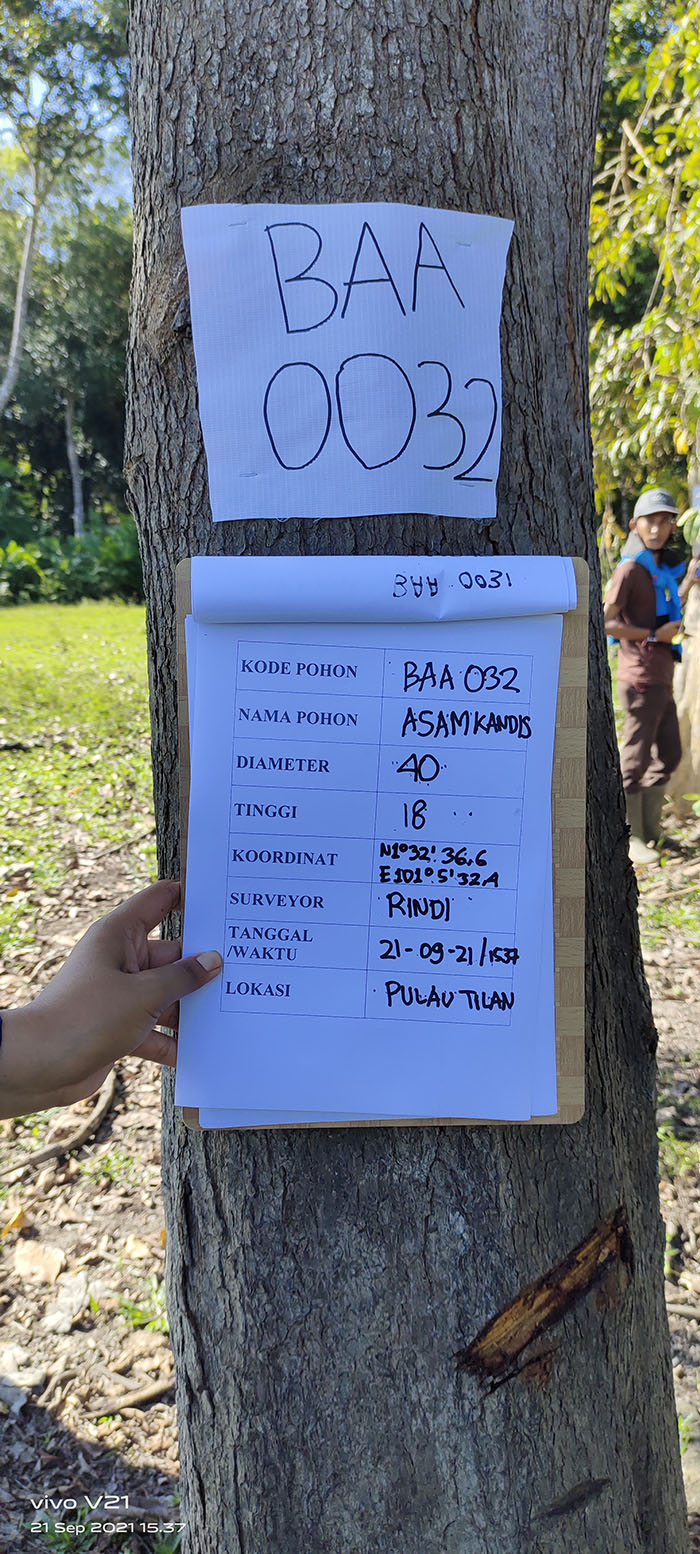 BAA
0032
BAA 0031
KODE POHON BAA 032
NAMA POHON ASAM KANDIS
DIAMETER 40
TINGGI 18
KOORDINAT N1°32'.36.6
E101°.5'32.A
SURVEYOR RINDI
TANGGAL
/WAKTU 21-09-21/1537
LOKASI PULAU TILAN
vivo V21
21 Sep 2021 15.37